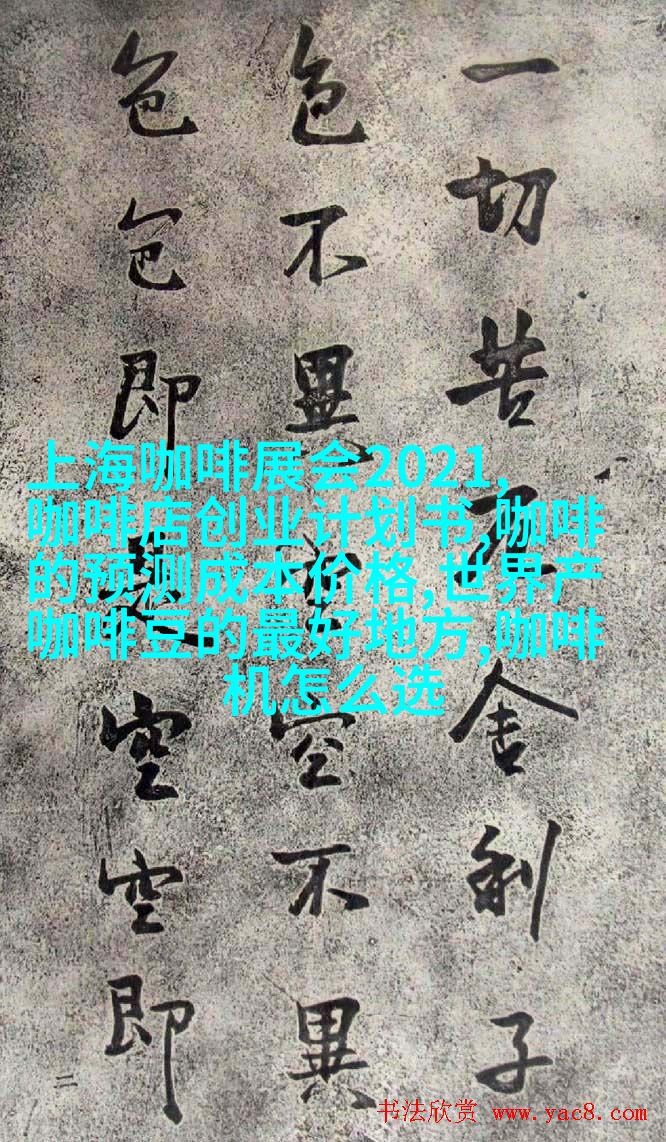 一切苦厄舍利子
色不異空空不異
色色即是空空即
二
上海咖啡展会2021,
咖啡店创业计划书,咖啡
的预测成本价格,世界产
咖啡豆的最好地方,咖啡
机怎么选
书法欣赏 www.yac8.com